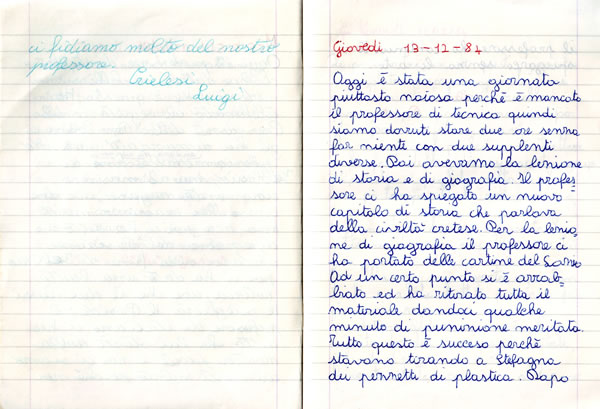 ci fidiamo molto del nostro
professore.
Crielesi
Luigi
Giovedì 13-12-84
Oggi è stata una giornata
piuttosto noiosa perchè è mancato
il professore di tecnica quindi
siamo dovuti stare due ore senza
far niente con due supplenti
diverse. Poi avevamo la lenione
di storia e di giografia. Il profes=
sore ci ha spiegato un nuovo
capitolo di storia che parlava
della civiltà cretese. Per la lenio=
ne di giografia il professore ci
ha portato delle cartine del
Ad un certo punto si è arrab=
biato ed ha ritirato tutta il
materiale dandoci qualche
minuto di puninione meritata.
Tutto questo è succeso perchè
stavano tirando a Stefagna
dei pennetti di plastica. Dopo